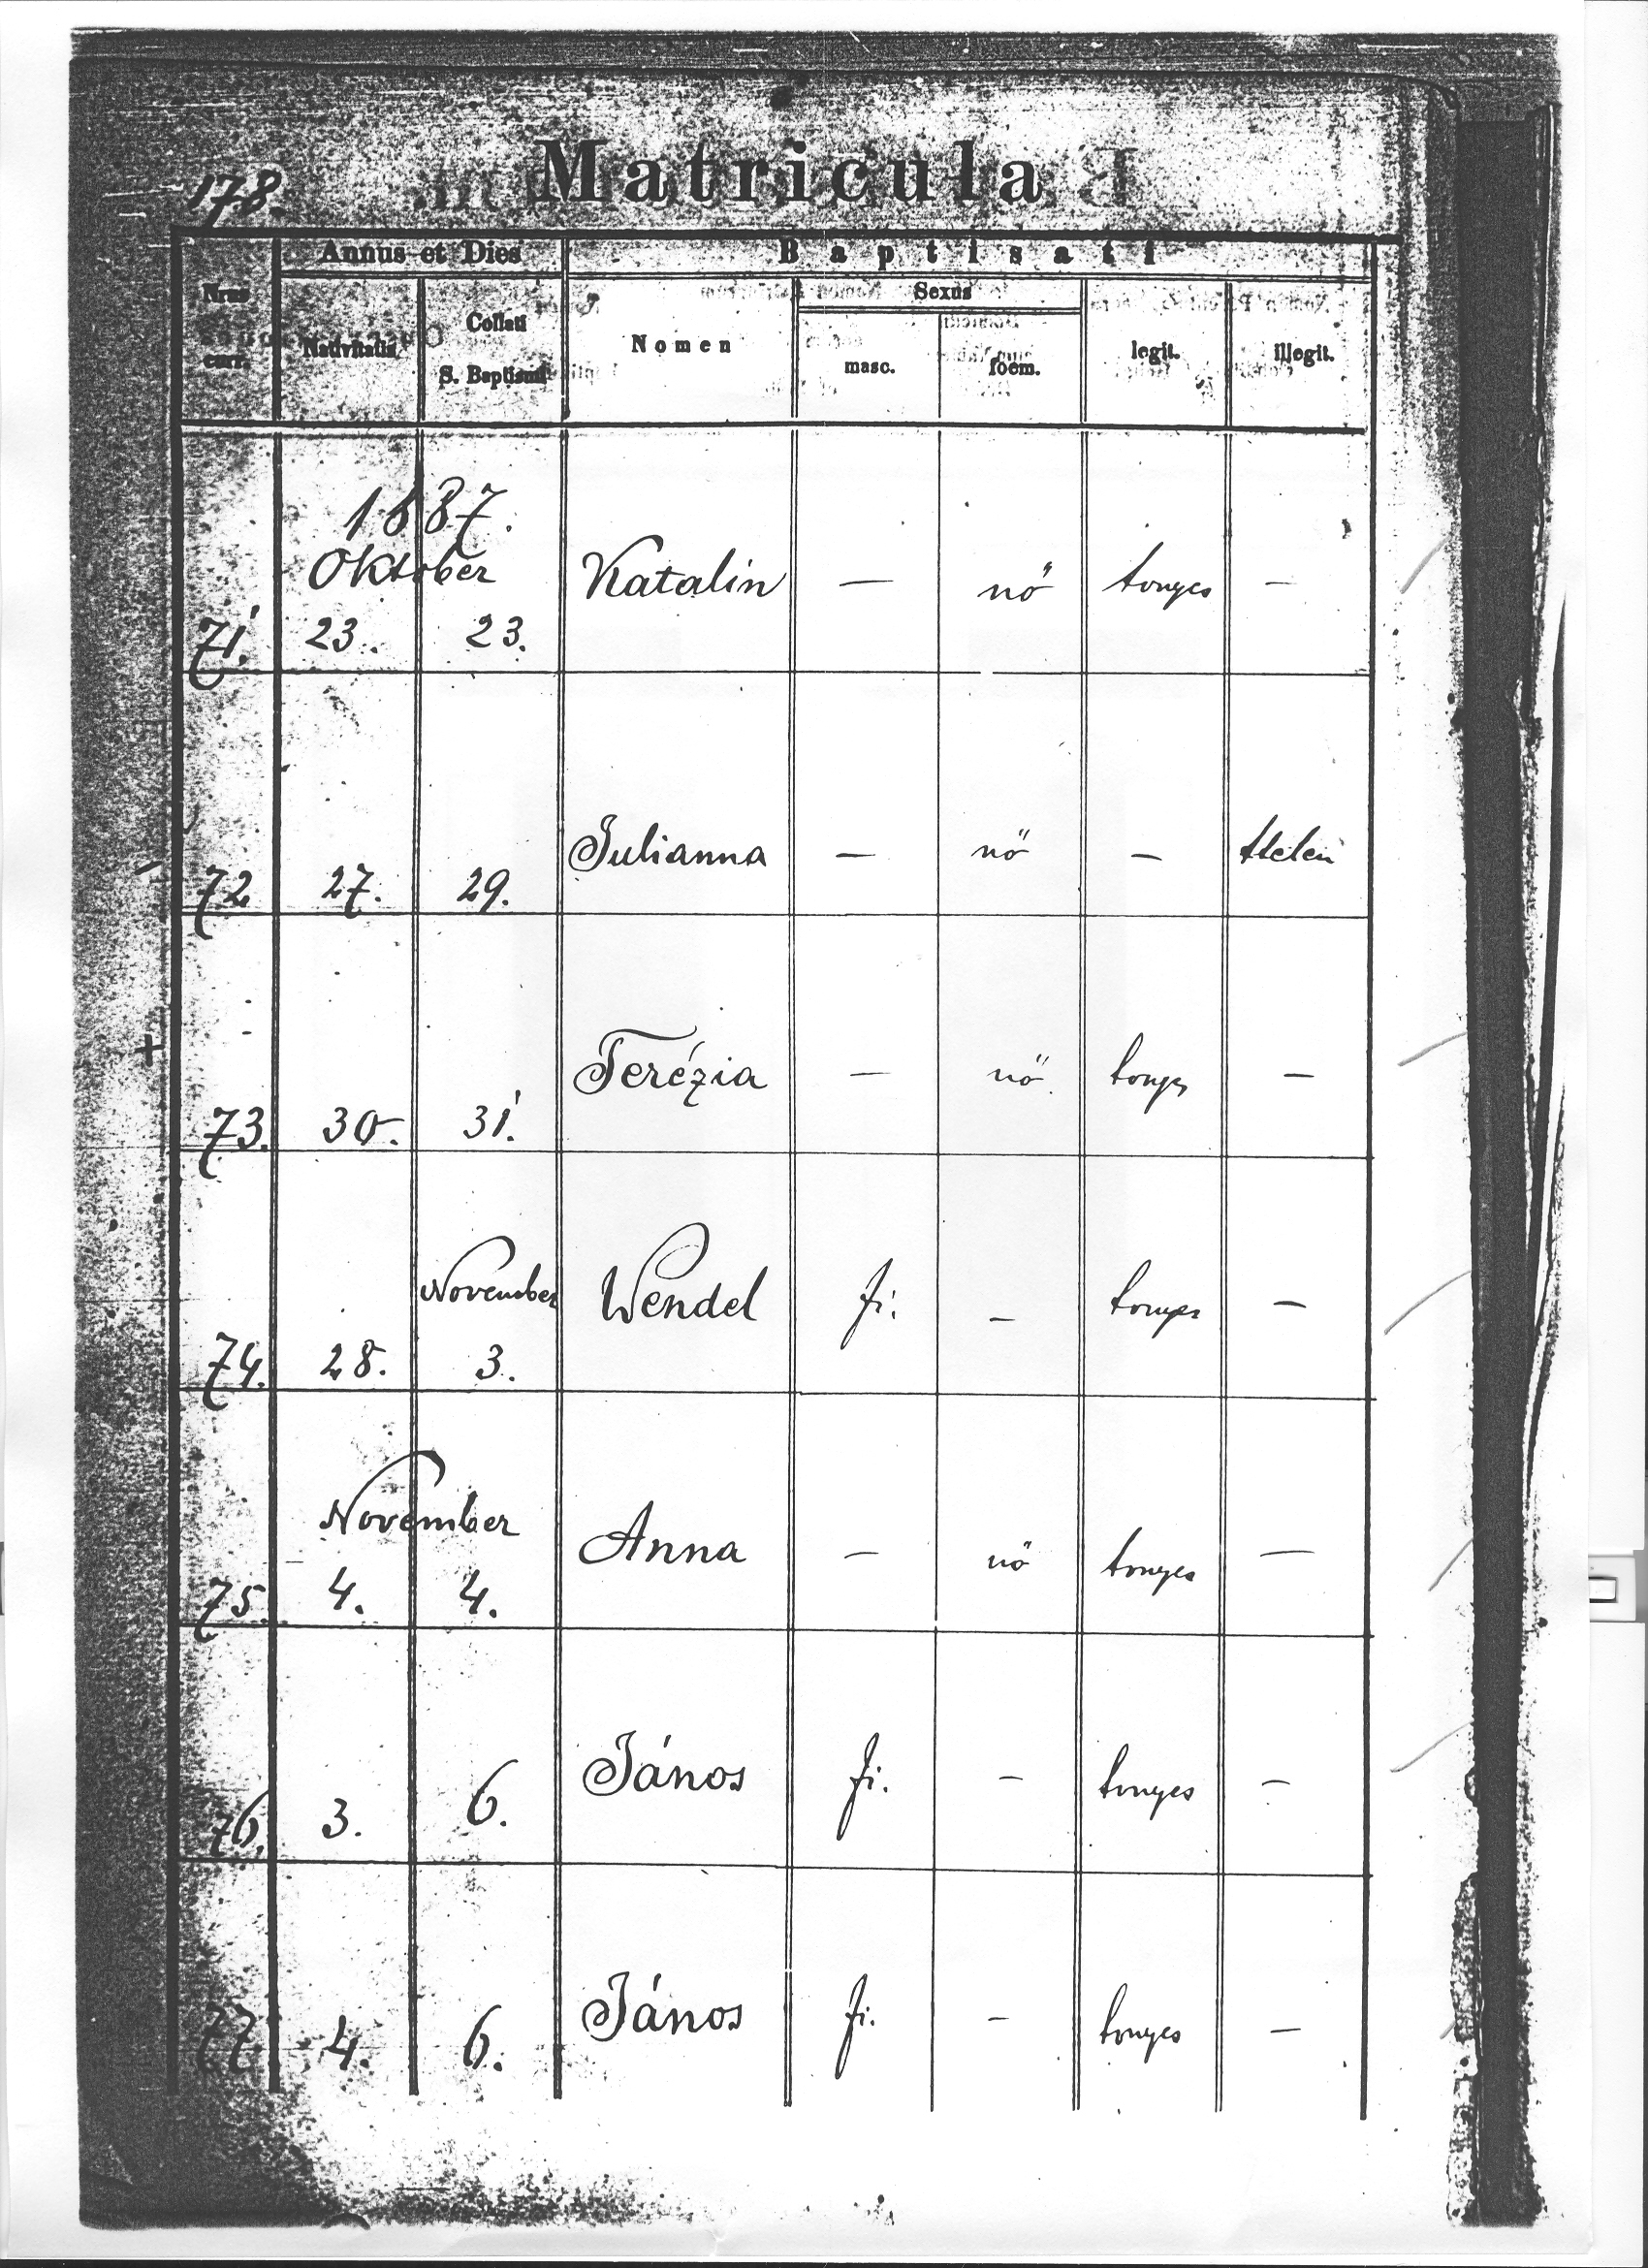 178.
Matricula
Annus et Dies
Baptisati
Nrus
curr.
Nativitatis
Collati
S. Baptismi
Nomen
Sexus
masc.
foem.
legit.
illegit.
1887.
Oktober
71. 23. 23. Katalin — nő tvnyes —
72 27. 29. Julianna — nő — ttelen
73. 30. 31. Terézia — nő tvnyes —
November
74. 28. 3. Wendel fi. — tvnyes —
November
75. 4. 4. Anna — nő tvnyes —
76. 3. 6. János fi. — tvnyes —
77. 4. 6. János fi. — tvnyes —